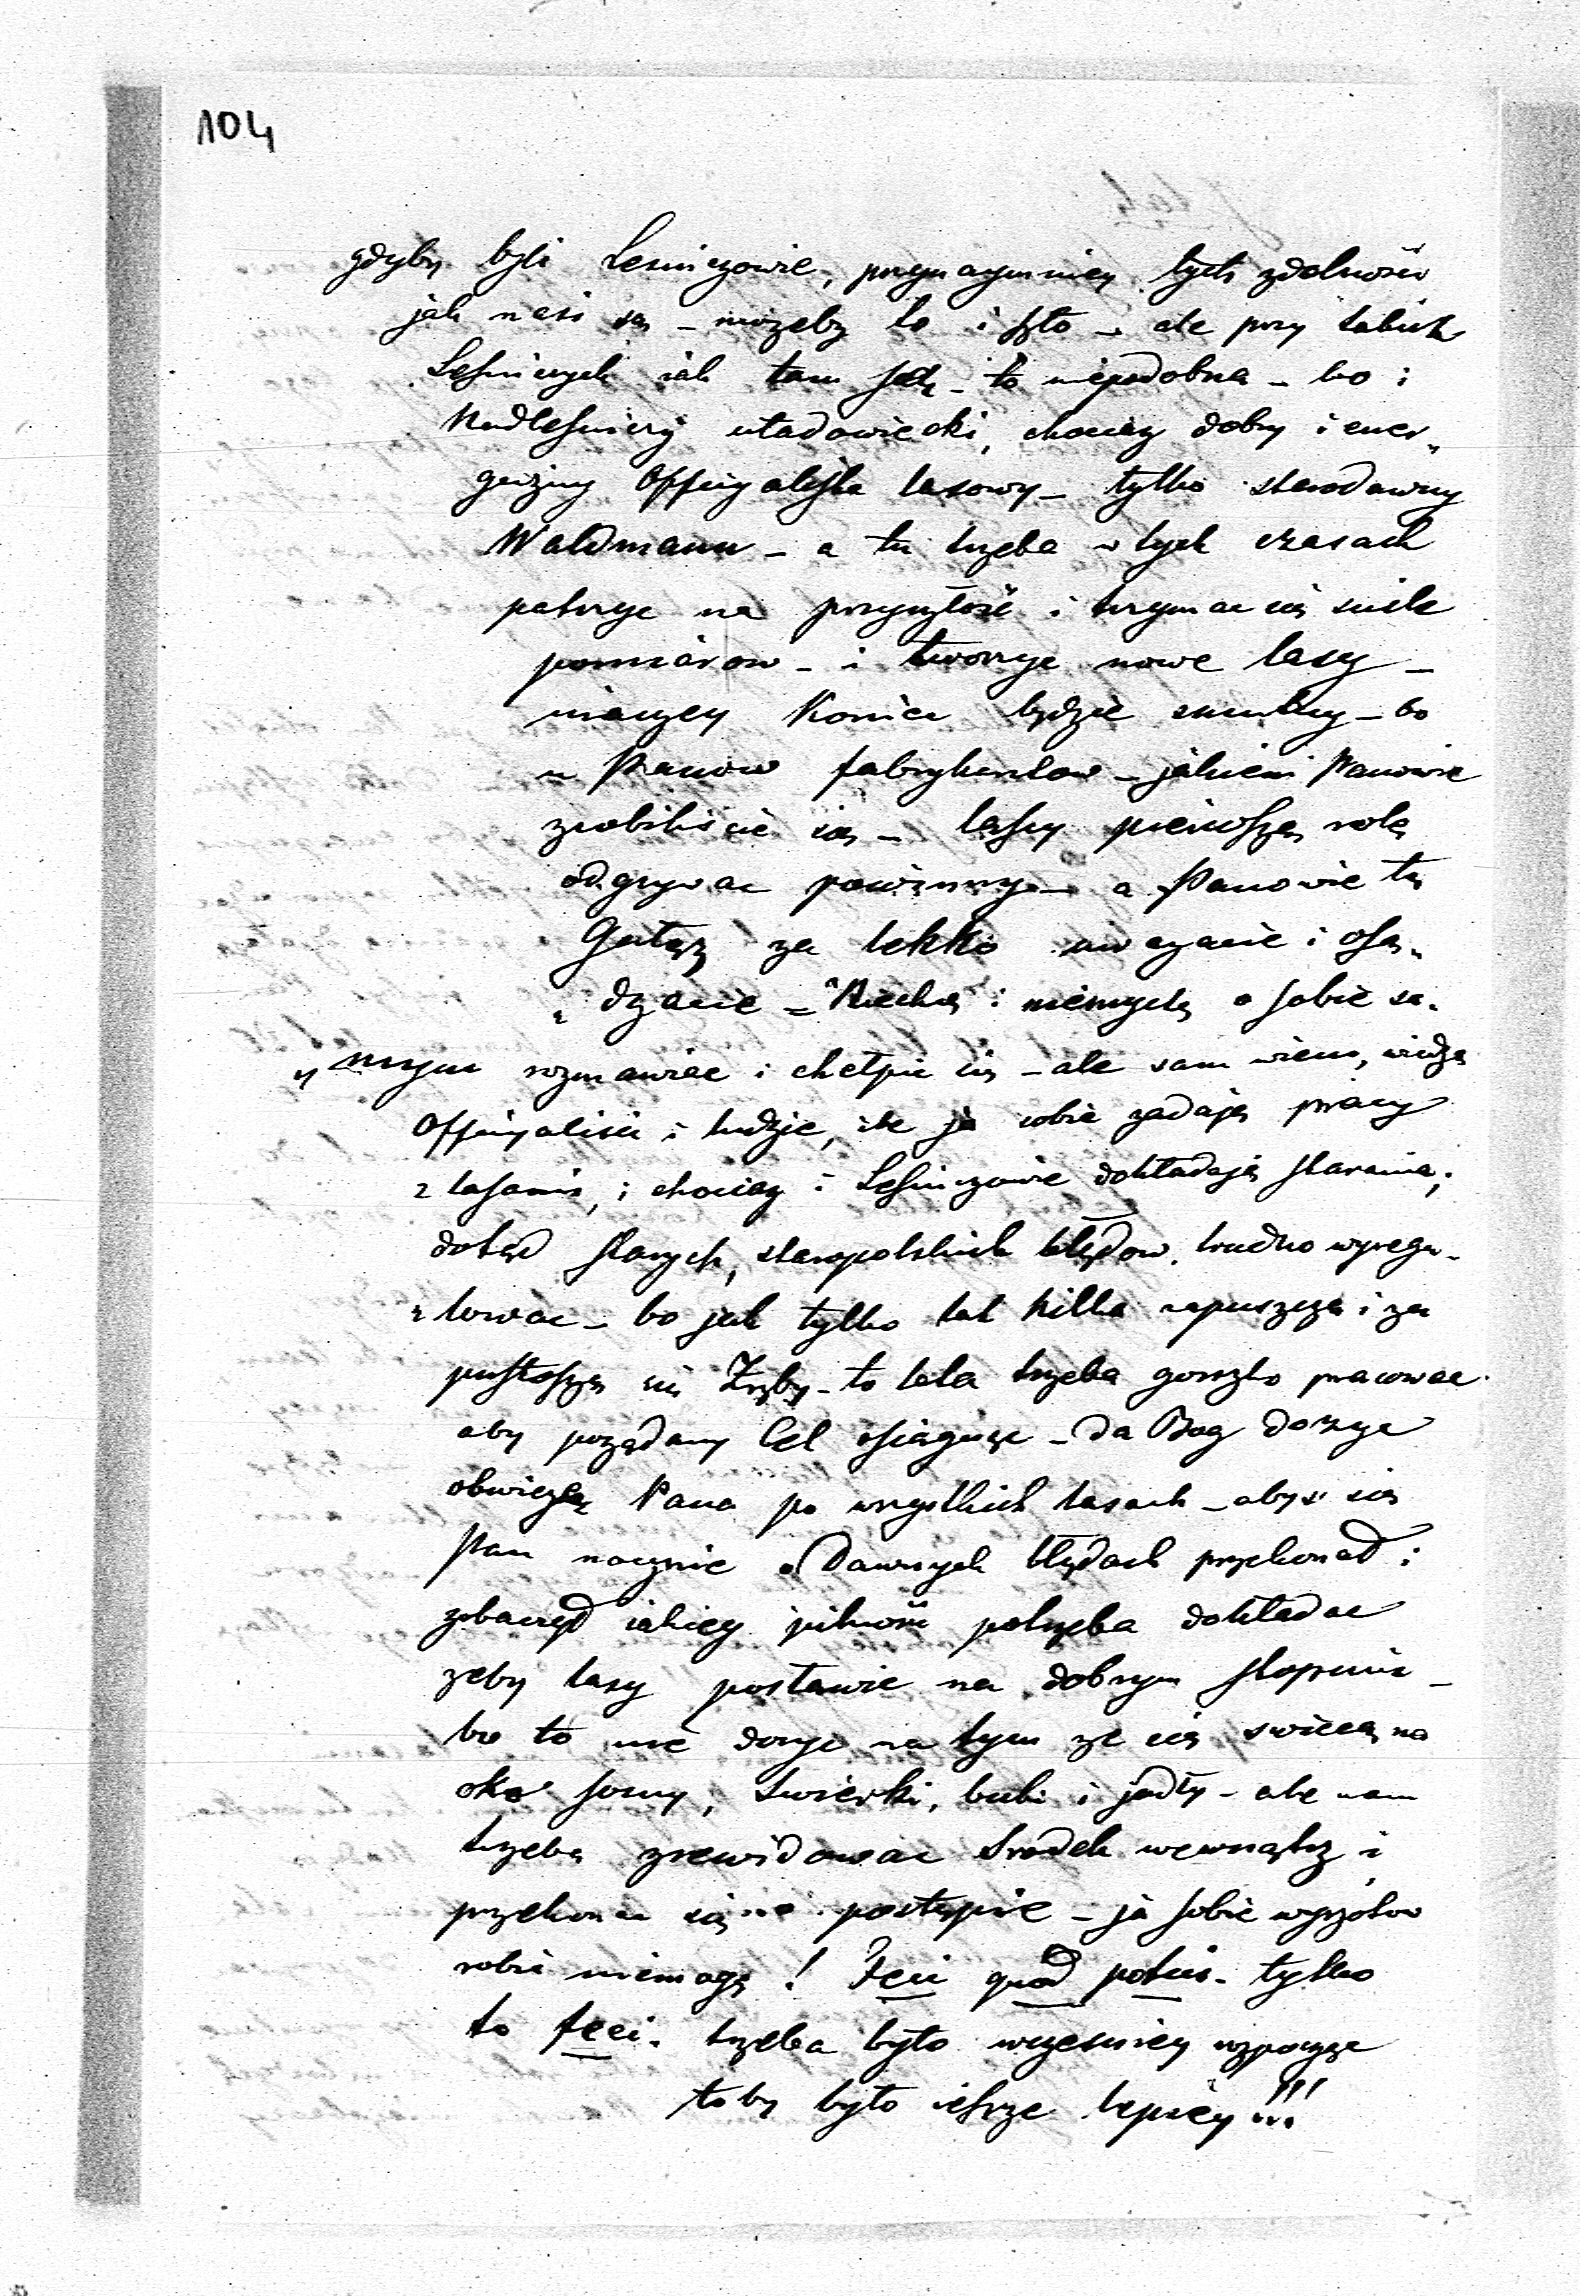 104
gdyby byli Lesniczowie, przynaymniey tych zdolnośćи
jak nasi są – możeby to i szło – ale przy takich
Leśniczych iak tam są – to niepodobna – bo i
Nadleśniczy Władowiecki, chociaz dobry i ener„
giczny Officyalista lasowy – tylko starodawny
Waldmann – a tu trzeba w tych czasach
patrzyc na przyszłość i trzymac się ściśle
pomiarow – i tworzyc nowe lasy –
inaczey Koniec będzie smutny – bo
u Panow fabrykantow – jakiemi Panowie
zrobiliście się – lasy pierwszą rolę
odgrywac powinny – a Panowie tę
Gałęz za lekko uwazacie i osą„
„dzacie – Niechcę i niemyslę o sobie sa„
„mym rozmawiac i chełpic się – ale sam wiem, widzą
Officyaliści i ludzie, ile ja sobie zadaję pracy
z lasami, i chociaz i Leśniczowie dokładają starania;
dotąd starych, staropolskich błędow trudno wyregu„
„lowac – bo jak tylko lat kilka zapuszczą i za
pustoszą się Zręby – to lata trzeba gorzko pracowac
aby pożądany Cel osiągnąc – da Bog dozyc
obwiozę Pana po wszystkich lasach – abyś się
Pan naocznie o Dawnych błędach przekonał i
zobaczył iakiey pilności potrzeba dokładac
zeby lasy postawic na dobrym stopniu –
bo to nie dosyc na tym ze się swiecą na
oko sosny, Swierki, buki i jodły – ale nam
trzeba zrewidowac Srodek wewnątrz i
przekonac się na postępie – ja sobie wyrzutow
robic niemogę! Feci quod potui – tylko
to feci – trzeba było wczesniey rozpocząc
toby było ieszcze lepiey!!!